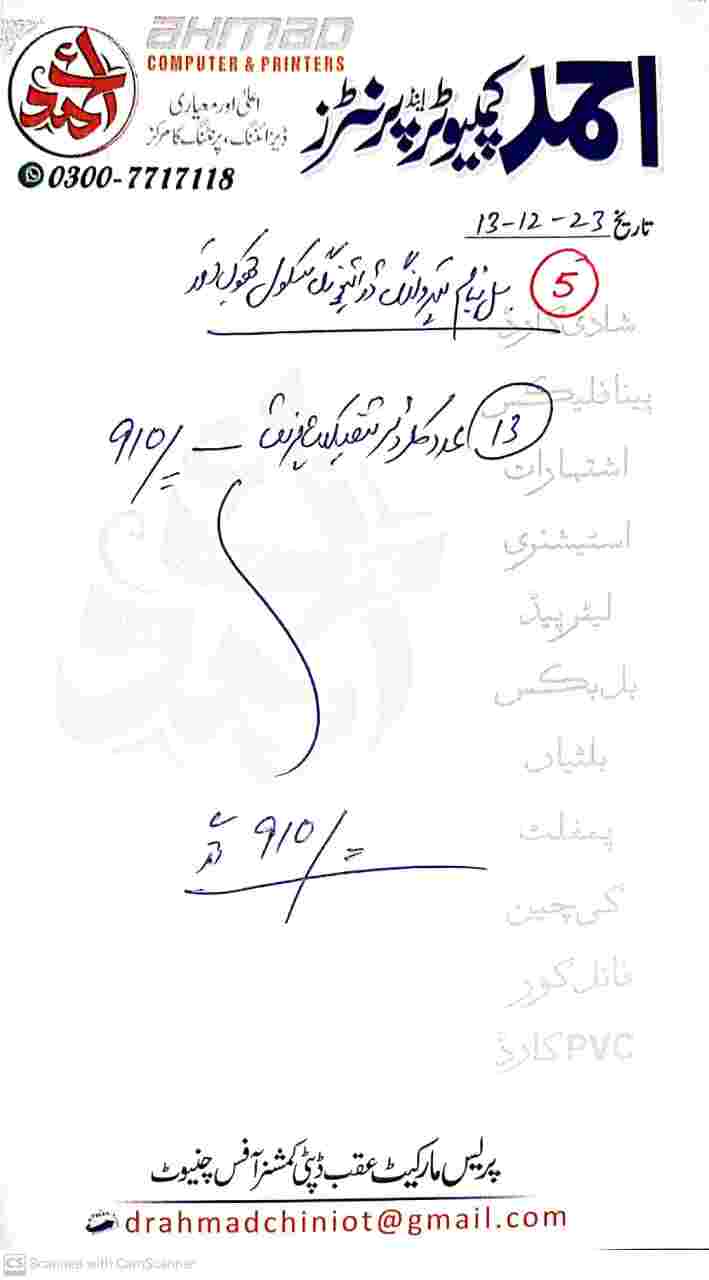 AHMAD
COMPUTER & PRINTERS
احمد کمپیوٹر اینڈ پرنٹرز
اعلیٰ اور معیاری
ڈیزائننگ، پرنٹنگ کا مرکز
0300-7717118
تاریخ 13-12-23
5 بل بنام سکول
13 عدد کلر پرنٹ 910/=
910/=
شادی کارڈ
پینا فلیکس
اشتہارات
اسٹیشنری
لیٹر پیڈ
بل بکس
بلٹیاں
پمفلٹ
کی چین
فائل کور
PVC کارڈ
پریس مارکیٹ عقب ڈپٹی کمشنر آفس چنیوٹ
drahmadchiniot@gmail.com
CS Scanned with CamScanner